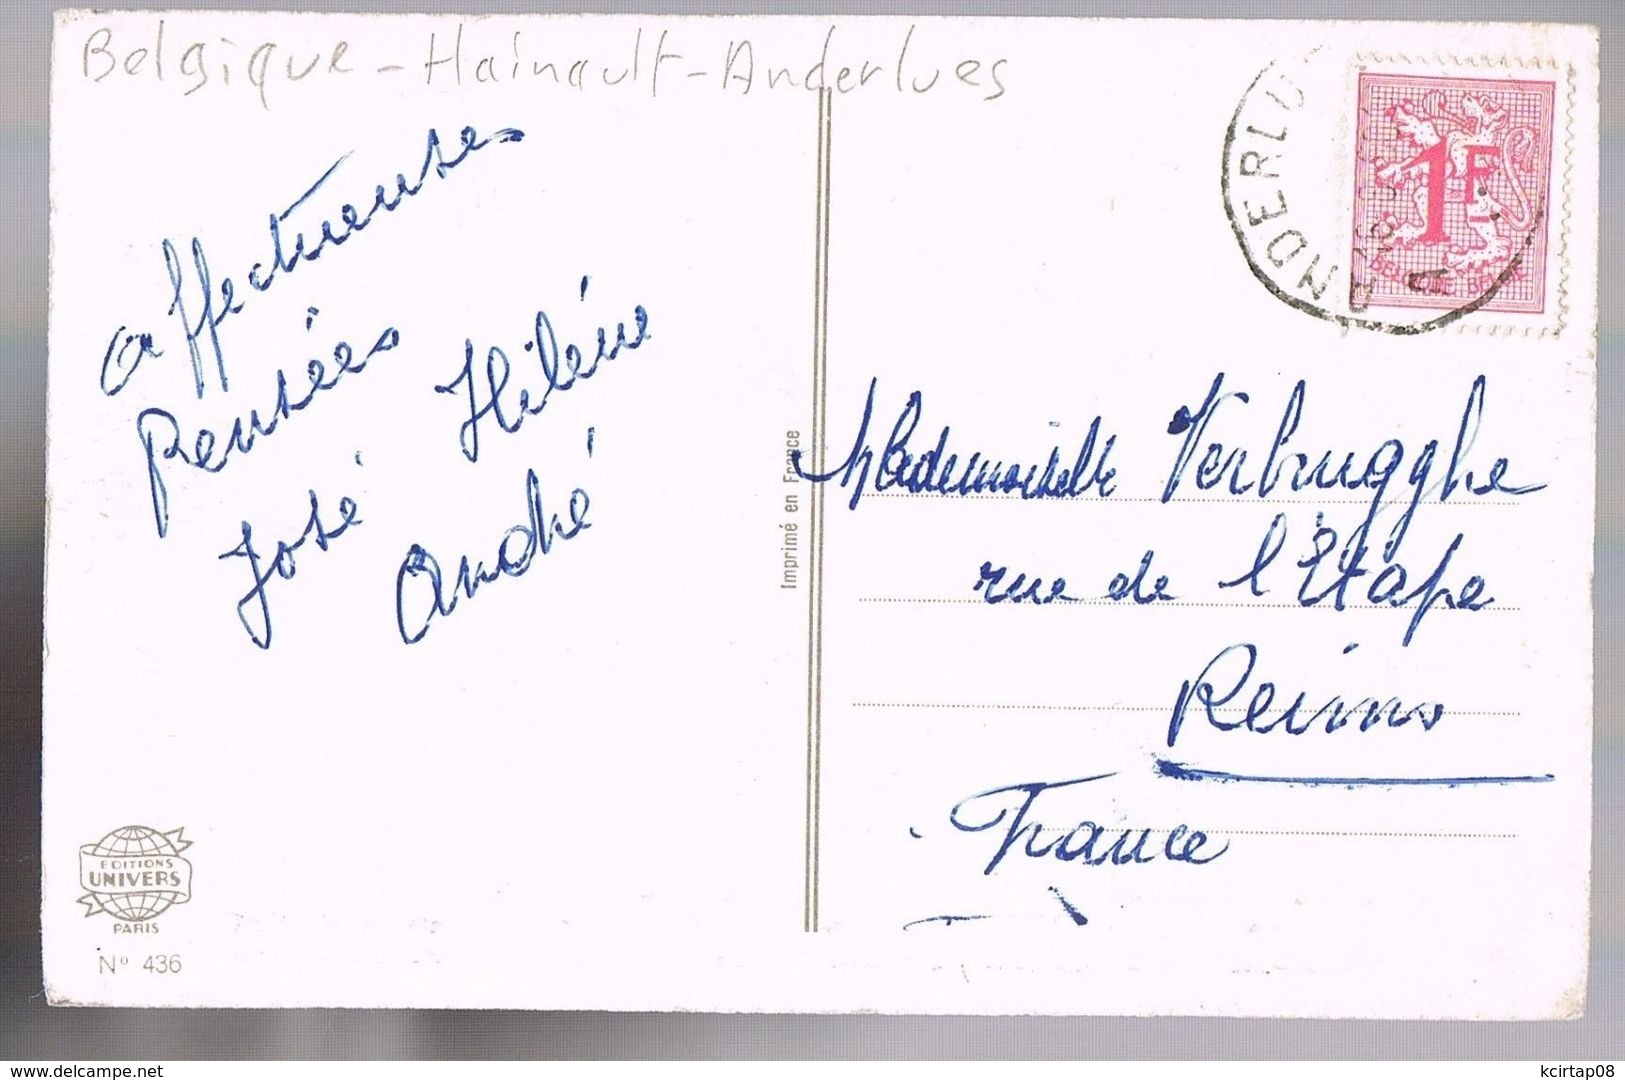 Belgique - Hainault - Anderlues
Affectueuses
Pensées
José Hélène
André
Imprimé en France
ANDERLU
A
1F
BELGIQUE BELGIE
Mademoiselle Verbrugghe
rue de l'Etape
Reims
France
EDITIONS
UNIVERS
PARIS
Nº 436
www.delcampe.net
kcirtap08